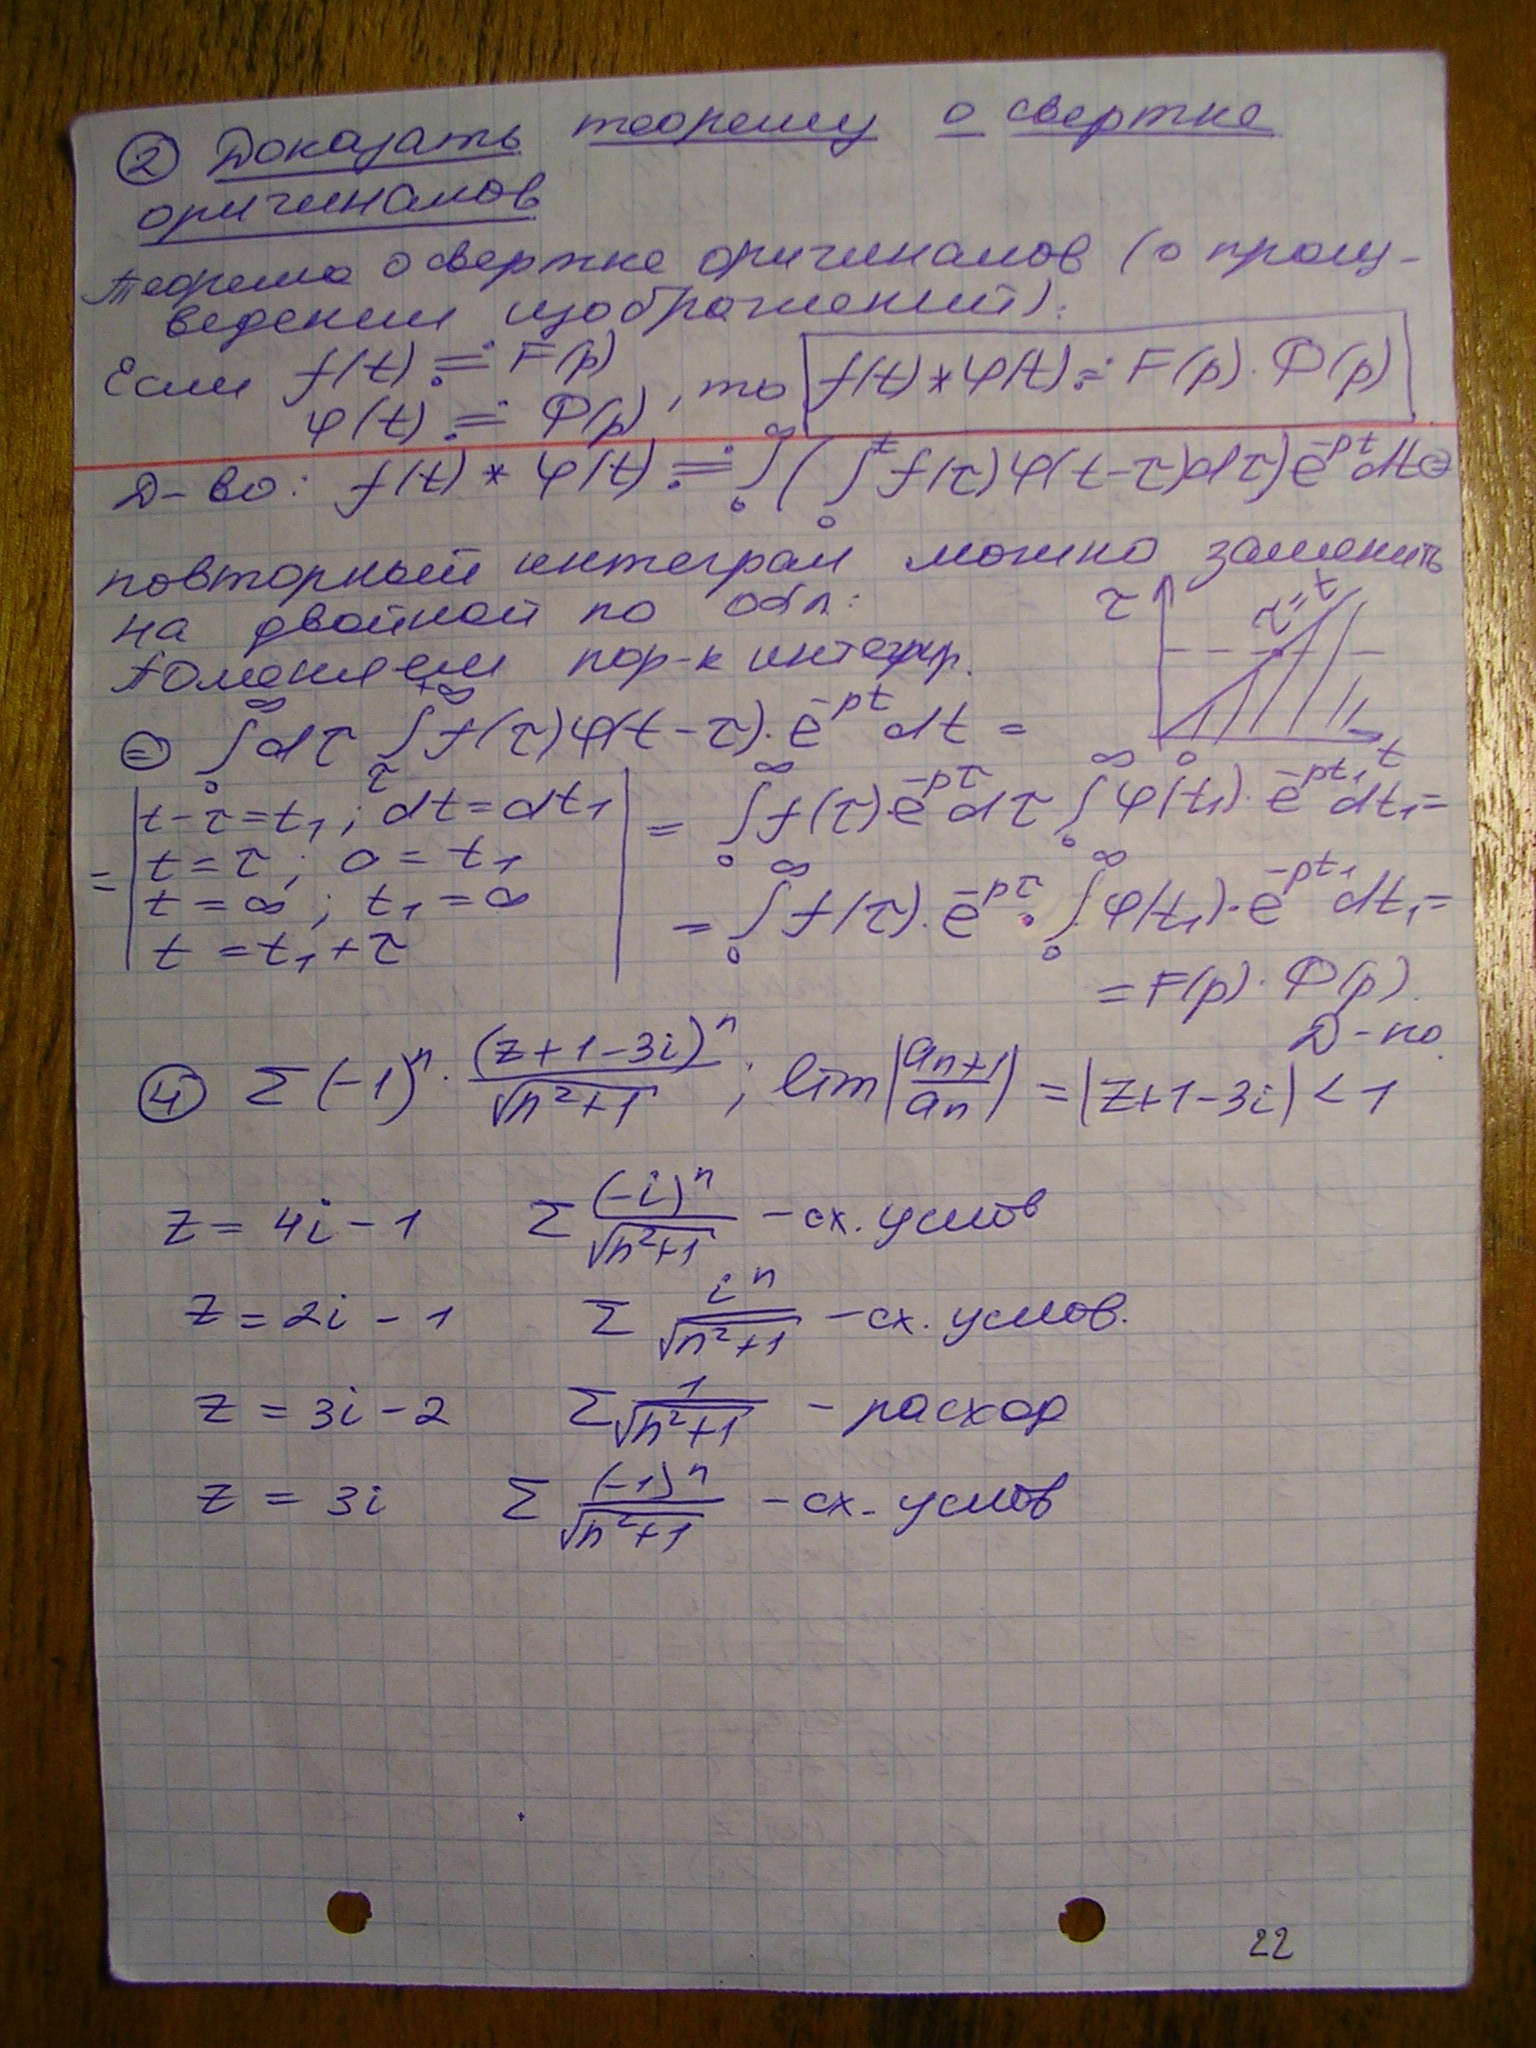 ② Доказать теорему о свертке
оригиналов
Теорема о свертке оригиналов (о произ-
ведении изображений):
Если f(t) ≓ F(p)
φ(t) ≓ Φ(p), то f(t) * φ(t) ≓ F(p) · Φ(p)
Д-во: f(t) * φ(t) ≓ ∫₀^∞ ( ∫₀^t f(τ) φ(t-τ)dτ) e^{-pt} dt ⊜
повторный интеграл можно заменить
на двойной по обл:
Поменяем пор-к интегрир.
τ τ=t 0 t
⊜ ∫₀^∞ dτ ∫_τ^{+∞} f(τ) φ(t-τ) · e^{-pt} dt =
= | t-τ = t₁ ; dt = dt₁
t = τ ; 0 = t₁
t = ∞ ; t₁ = ∞
t = t₁ + τ |
= ∫₀^∞ f(τ) · e^{-pτ} dτ ∫₀^∞ φ(t₁) · e^{-pt₁} dt₁ =
= ∫₀^∞ f(τ) · e^{-pτ} · ∫₀^∞ φ(t₁) · e^{-pt₁} dt₁ =
= F(p) · Φ(p).
Д-но.
④ Σ (-1)^n · (z+1-3i)^n / √(n²+1) ; lim |a_{n+1} / a_n| = |z+1-3i| < 1
z = 4i - 1 Σ (-i)^n / √(n²+1) - сх. услов
z = 2i - 1 Σ i^n / √(n²+1) - сх. услов.
z = 3i - 2 Σ 1 / √(n²+1) - расход
z = 3i Σ (-1)^n / √(n²+1) - сх. услов
22